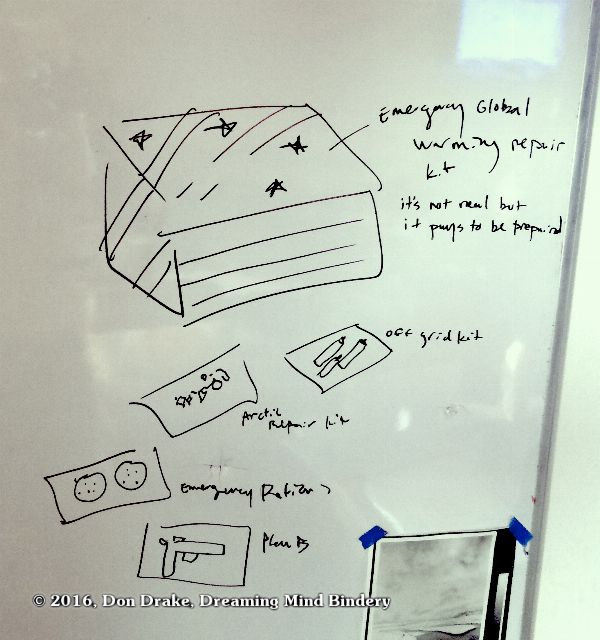 Emergency Global
warming repair
kit
it's not real but
it pays to be prepared
off grid kit
Arctic
Repair kit
Emergency Rations
Plan B
© 2016, Don Drake, Dreaming Mind Bindery